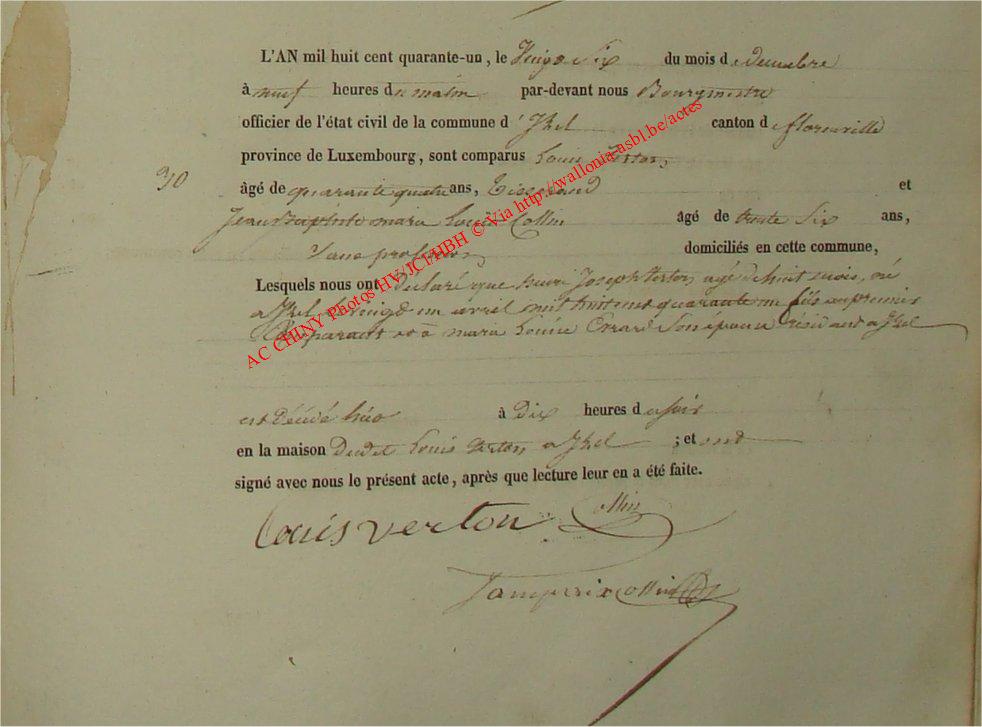 L'AN mil huit cent quarante-un, le Vingt Six du mois de decembre
à neuf heures du matin par-devant nous Bourgmestre
officier de l'état civil de la commune d' Izel canton de florenville
province de Luxembourg, sont comparus Louis Verton
30
âgé de quarante quatre ans, Tisserand et
Jean Baptiste marie Louis Collin âgé de trente Six ans,
Sans profession domiciliés en cette commune,
Lesquels nous ont Déclaré que henri Joseph Verton agé de huit mois, né
a Izel le vingt un avril mil huit cent quarante un fils au premier
Comparant et à marie Louise Errard Son épouse résidant a Izel
est Décédé hier à dix heures du soir
en la maison Dudit Louis Verton a Izel ; et ont
signé avec nous le présent acte, après que lecture leur en a été faite.
Louis verton Collin
Collin
AC CHINY Photos HV/JCI/HBH © Via http://wallonia-asbl.be/aotes